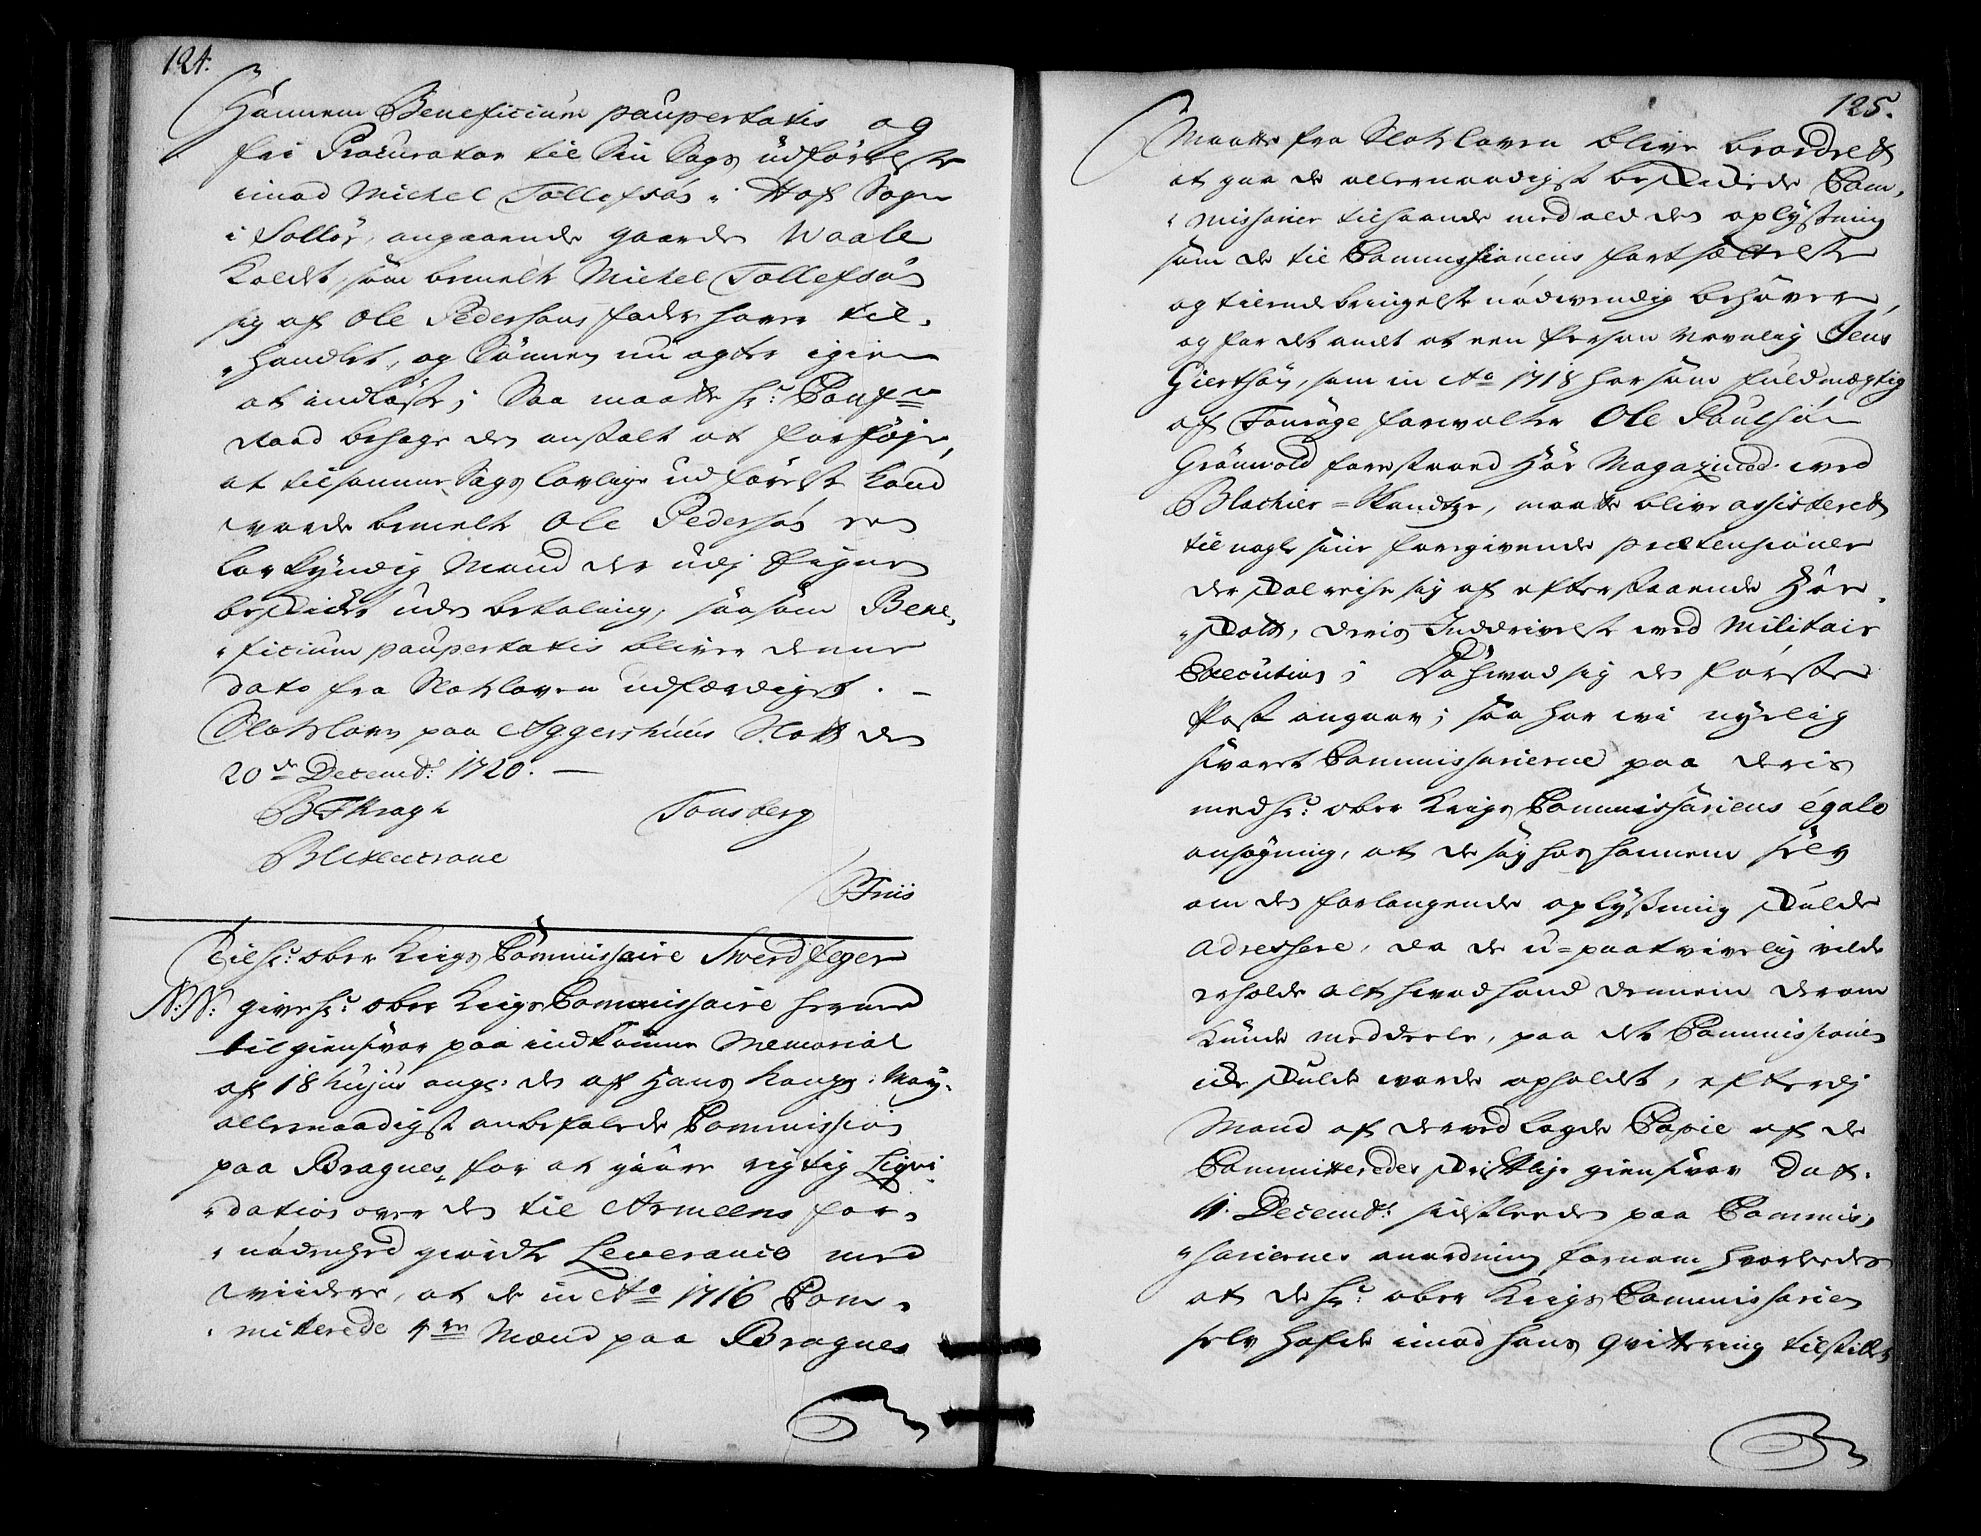 124.
Hannem Beneficium paupertatis og
fri Procurator til Sin Sags udførelse
imod Michel Tollefsøn i Hof Sogn
i Solløer, angaaende gaarden Waale
kaldet, som bemelte Michel Tollefsøn
sig af Ole Pedersøns fader haver til-
handlet, og Sønnen nu agter igien
at indløse; Saa maatte Hr: Conf:
Raad behage den anstalt at forføje,
at til samme Sags lovlige udførelse kand
vorde bemelte Ole Pedersøn en
lovkyndig Mand der udj Eignen
beskicket uden betaling, saasom Bene-
ficium paupertatis bliver denne
dato fra Slotsloven udfærdiget. -
Slotsloven paa Aggershuus Slott den
20de Decembr: 1720. -
BF Kragh Tonsberg
Blixencrone
Friis
Til Hr: ober Krigs Commissaire Swerdfeger
N:N: give Hr: ober Krigs Commissaire herved
til giensvar paa indkomne Memorial
af 18 hujus ang: den af Hans Kongs: May:
allernaadigst anbefalede Commission
paa Bragnes, for at giøre rigtig Liqvi-
dation over den til Armeens for-
nødenhed giorde Leverance med
viidere, at de in Ao 1716 Com-
mitterede 4re Mænd paa Bragnes
125.
Maatte fra Slotsloven blive beordret
at gaa de allernaadigst beskickede Com-
missarier tilhaande med ald den oplysning
som de til Commissionens fortsættelse
og tilendebringelse nødvendig behøver,
og for det andet at een Person Navnlig Jens
Giertsøn, som in Ao 1718 har som fuldmægtig
af Fourage forvalter Ole Poulsøn
Grönwold forestaaed Høe Magazinet ved
Blachier-Skandtze, maatte blive assisteret
til nogle sine foregivende prætensioner
der skal reise sig af efterstaaende Høe-
skatt, deris Inddrivelse ved Militair
Execution; Da hvad sig den første
Post angaar; saa har wi nyelig
svaret Commissarierne paa deris
med Hr: ober Krigs Commissariens égale
ansøgning, at de sig hos hannem selv
om den forlangende oplysning skulde
adressere, da de u-paatvivelig vilde
erholde alt hvad hand dennem derom
kunde meddeele, paa det Commissionen
icke skulde worde opholdt, efterdj
Mand af derved lagde Copie af de
Committeredes skriftlige giensvar Dat.
11. Decembr: sidstleeden paa Commis-
sariernes anordning fornam hvorledes
at de Hr: ober Krigs Commissarien
selv hafde imod hans qvittering tilstillet